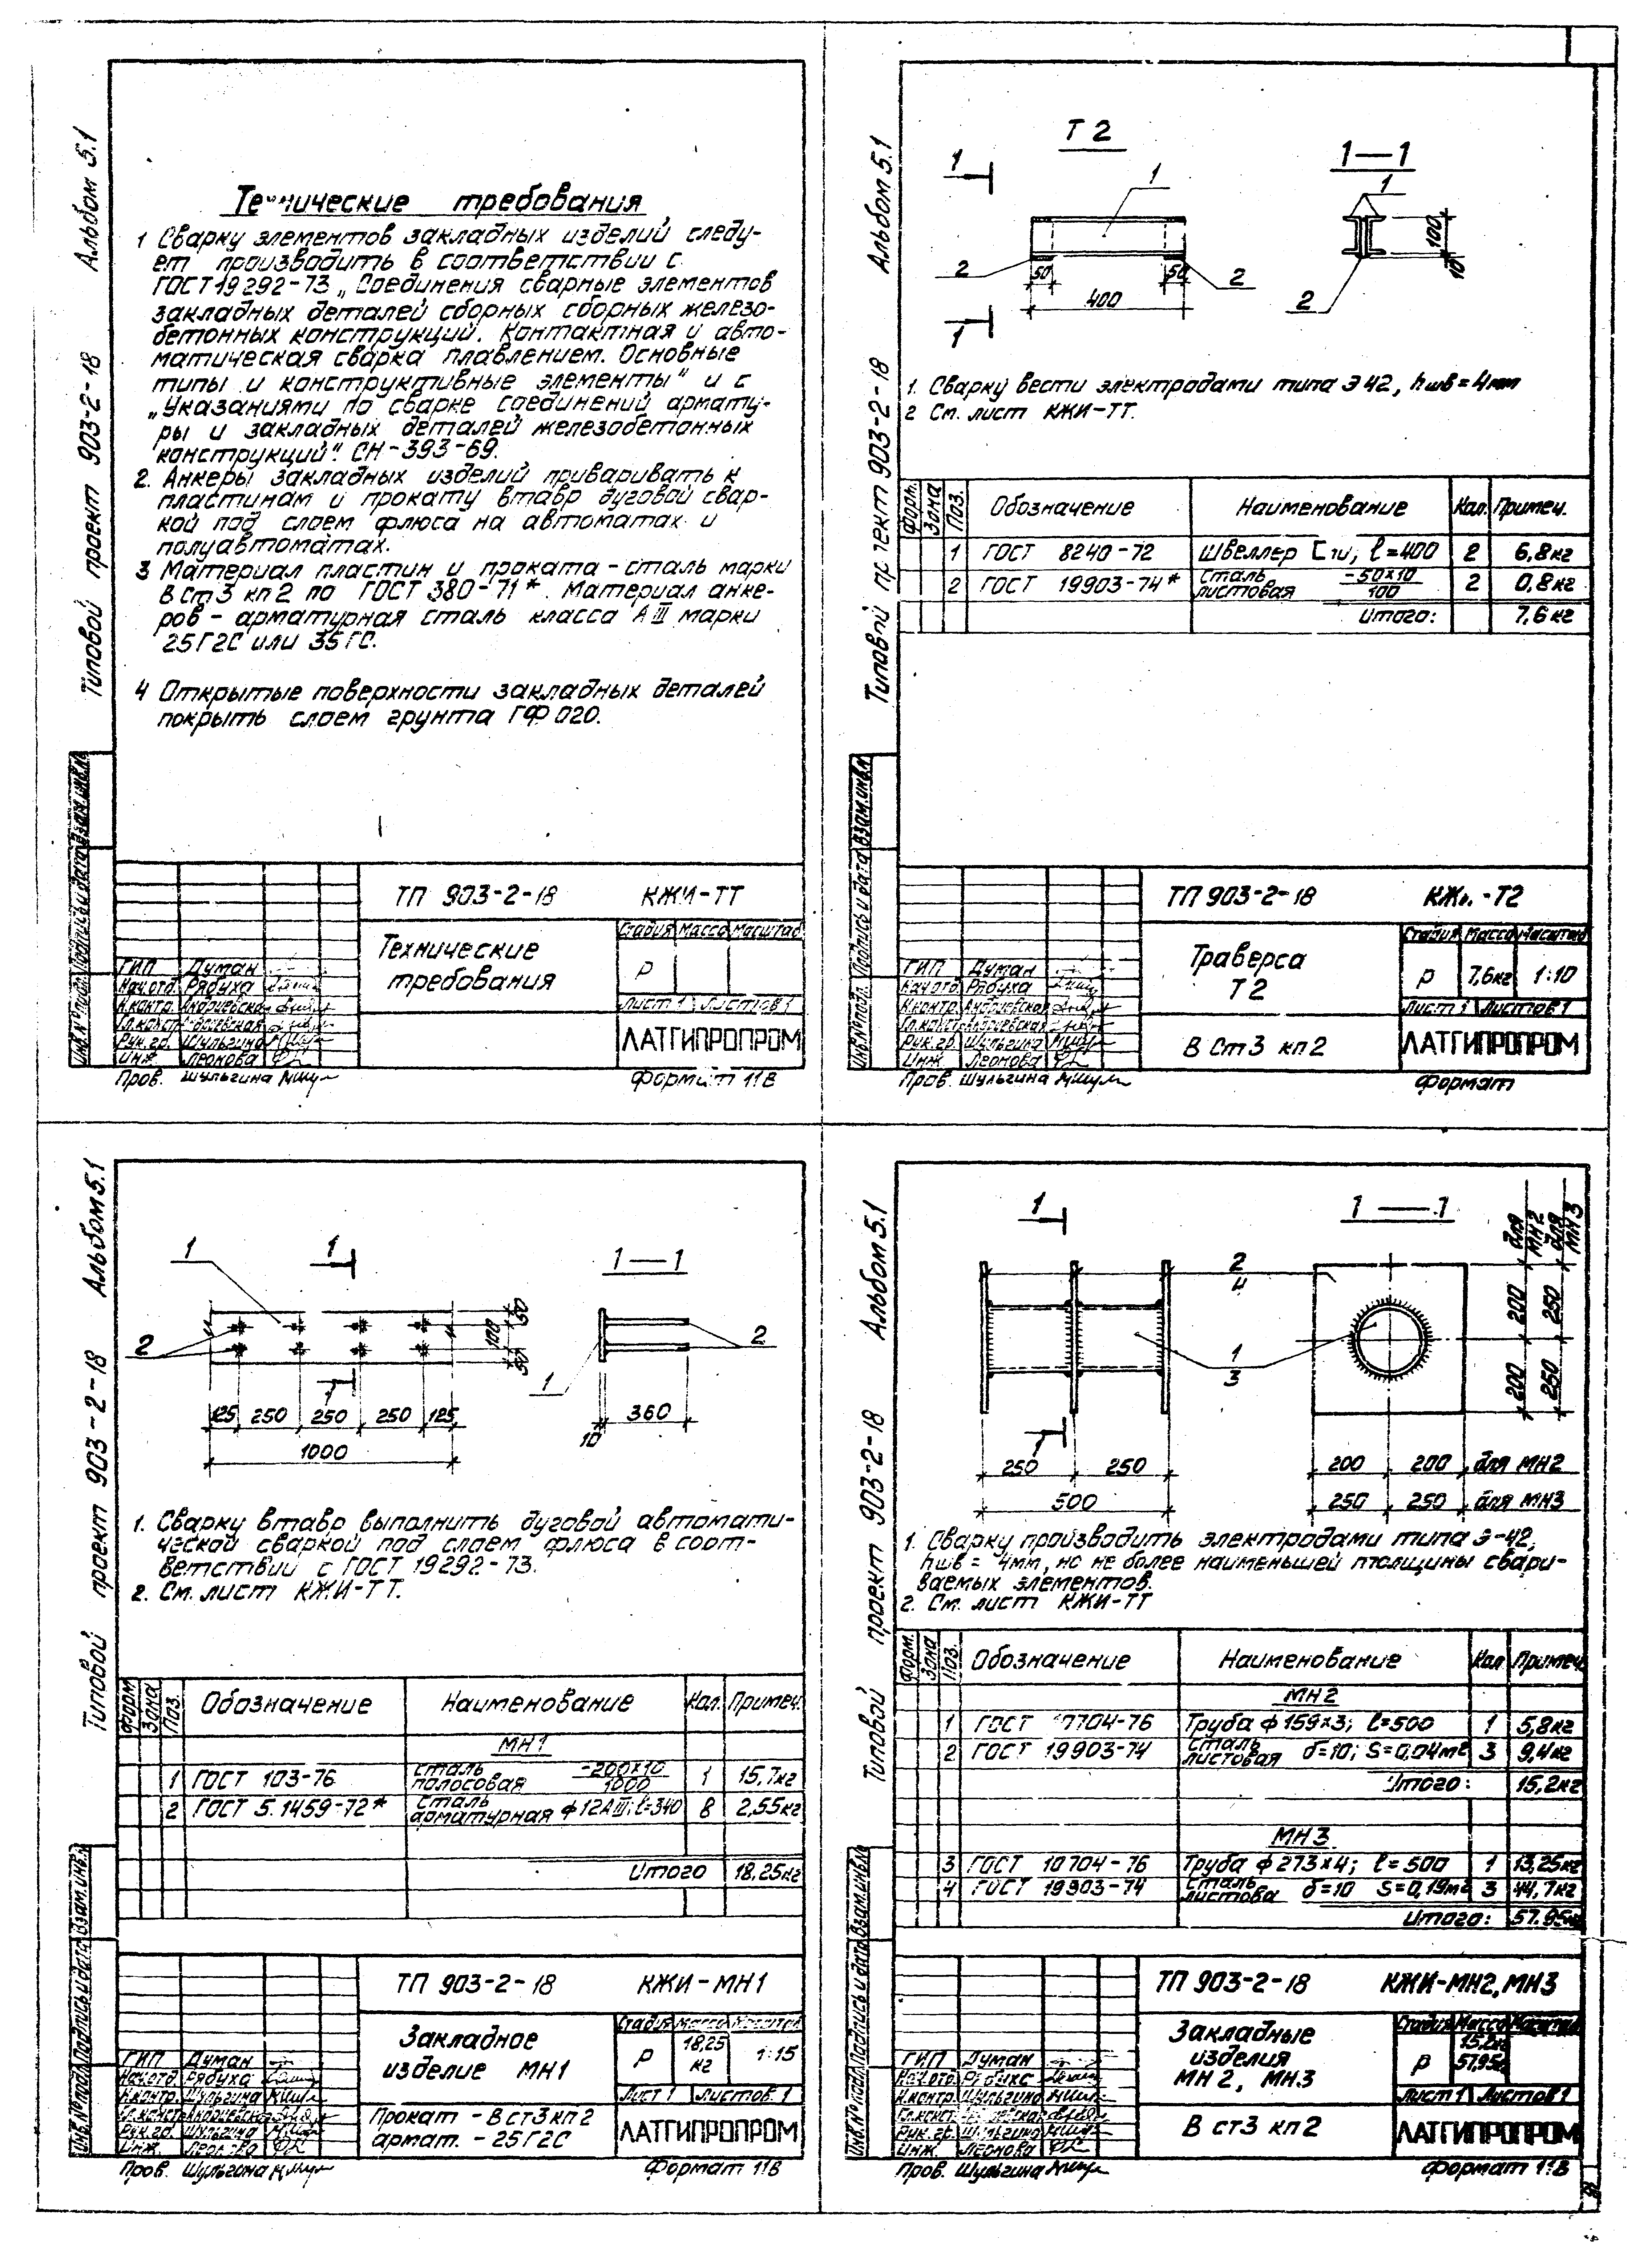 Альбом 5.1
Типовой проект 903-2-18
Технические требования
1 Сварку элементов закладных изделий следу-
ет производить в соответствии с
ГОСТ 19292-73 „Соединения сварные элементов
закладных деталей сборных сборных железо-
бетонных конструкций. Контактная и авто-
матическая сварка плавлением. Основные
типы и конструктивные элементы" и с
„Указаниями по сварке соединений армату-
ры и закладных деталей железобетонных
конструкций". СН-393-69.
2. Анкеры закладных изделий приваривать к
пластинам и прокату втавр дуговой свар-
кой под слоем флюса на автоматах и
полуавтоматах.
3 Материал пластин и проката - сталь марки
В ст3 кп2 по ГОСТ 380-71*. Материал анке-
ров - арматурная сталь класса АIII марки
25Г2С или 35ГС.
4 Открытые поверхности закладных деталей
покрыть слоем грунта ГФ 020.
Инв.№ подл. Подпись и дата Взам.инв.№
ТП 903-2-18 КЖИ-ТТ
Технические
требования
Стадия Масса Масштаб
Р
Лист 1 Листов 1
ЛАТГИПРОПРОМ
ГИП Думан
Нач.отд. Рябуха
Н.контр. Андриевская
Гл.констр.
Рук.гр. Шульгина
Инж. Леонова
Пров. Шульгина
Формат 11В
Альбом 5.1
Типовой проект 903-2-18
Т 2
1 1
1—1
1 1
2 2 2
50 50
400
100
10
1. Сварку вести электродами типа Э 42, hшв = 4мм
2 См. лист КЖИ-ТТ.
Форм. Зона Поз. Обозначение Наименование Кол. Примеч.
1 ГОСТ 8240-72 Швеллер [10; ℓ=400 2 6,8кг
2 ГОСТ 19903-74* Сталь листовая -50×10/100 2 0,8кг
Итого: 7,6кг
Инв.№ подл. Подпись и дата Взам.инв.№
ТП 903-2-18 КЖИ-Т2
Траверса
Т 2
Стадия Масса Масштаб
Р 7,6кг 1:10
Лист 1 Листов 1
В Ст3 кп2
ЛАТГИПРОПРОМ
ГИП Думан
Нач.отд. Рябуха
Н.контр. Андриевская
Гл.констр. Андриевская
Рук.гр. Шульгина
Инж. Леонова
Пров. Шульгина
Формат
Альбом 5.1
Типовой проект 903-2-18
1 1 1—1
2 2
1
50
100
50
1
125 250 250 250 125
1000
10 360
1. Сварку втавр выполнить дуговой автомати-
ческой сваркой под слоем флюса в соот-
ветствии с ГОСТ 19292-73.
2. См. лист КЖИ-ТТ.
Форм Зона Поз. Обозначение Наименование Кол. Примеч.
МН1
1 ГОСТ 103-76 Сталь полосовая -200×10/1000 1 15,7кг
2 ГОСТ 5.1459-72* Сталь арматурная ф12АIII; ℓ=340 8 2,55кг
Итого 18,25кг
Инв.№ подл. Подпись и дата Взам.инв.№
ТП 903-2-18 КЖИ-МН1
Закладное
изделие МН1
Стадия Масса Масштаб
Р 18,25 кг 1:15
Лист 1 Листов 1
Прокат - В ст3 кп2
армат. - 25Г2С
ЛАТГИПРОПРОМ
ГИП Думан
Нач.отд. Рябуха
Н.контр. Шульгина
Гл.констр. Андриевская
Рук.гр. Шульгина
Инж. Леонова
Пров. Шульгина
Формат 11В
Альбом 5.1
Типовой проект 903-2-18
1 1—1
2
4
1
3
1
для МН2
для МН3
200 250
200 250
250 250
500
200 200 для МН2
250 250 для МН3
1. Сварку производить электродами типа Э-42,
hшв = 4мм, но не более наименьшей толщины свари-
ваемых элементов.
2. См. лист КЖИ-ТТ
Форм. Зона Поз. Обозначение Наименование Кол Примеч.
МН2
1 ГОСТ 10704-76 Труба ф159×3; ℓ=500 1 5,8кг
2 ГОСТ 19903-74 Сталь листовая δ=10; S=0,04м² 3 9,4кг
Итого: 15,2кг
МН3
3 ГОСТ 10704-76 Труба ф273×4; ℓ=500 1 13,25кг
4 ГОСТ 19903-74 Сталь листова δ=10 S=0,19м² 3 44,7кг
Итого: 57.95кг
Инв.№ подл. Подпись и дата Взам.инв.№
ТП 903-2-18 КЖИ-МН2,МН3
Закладные
изделия
МН2, МН3
Стадия Масса Масштаб
Р 15,2кг 57,95кг
Лист 1 Листов 1
В ст3 кп2
ЛАТГИПРОПРОМ
ГИП Думан
Нач.отд. Рябуха
Н.контр. Шульгина
Гл.конст.
Рук.гр. Шульгина
Инж. Леонова
Пров. Шульгина
Формат 11В